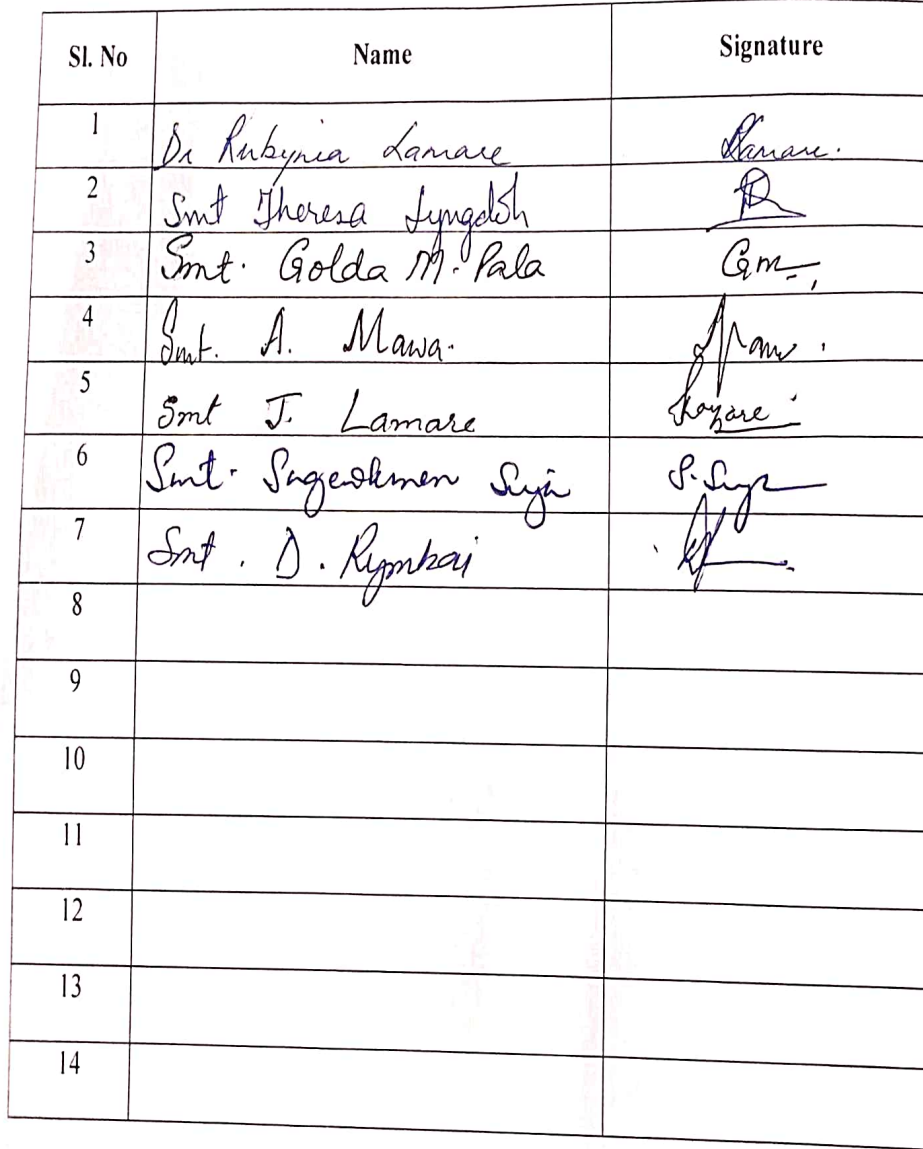 Sl. No Name Signature
1 Dr Rubynia Lamare Lamare.
2 Smt Theresa Lyngdoh
3 Smt. Golda M. Pala Gm
4 Smt. A. Mawa.
5 Smt J. Lamare
6 Smt. Suja S. Suja
7 Smt. D. Rymbai
8
9
10
11
12
13
14